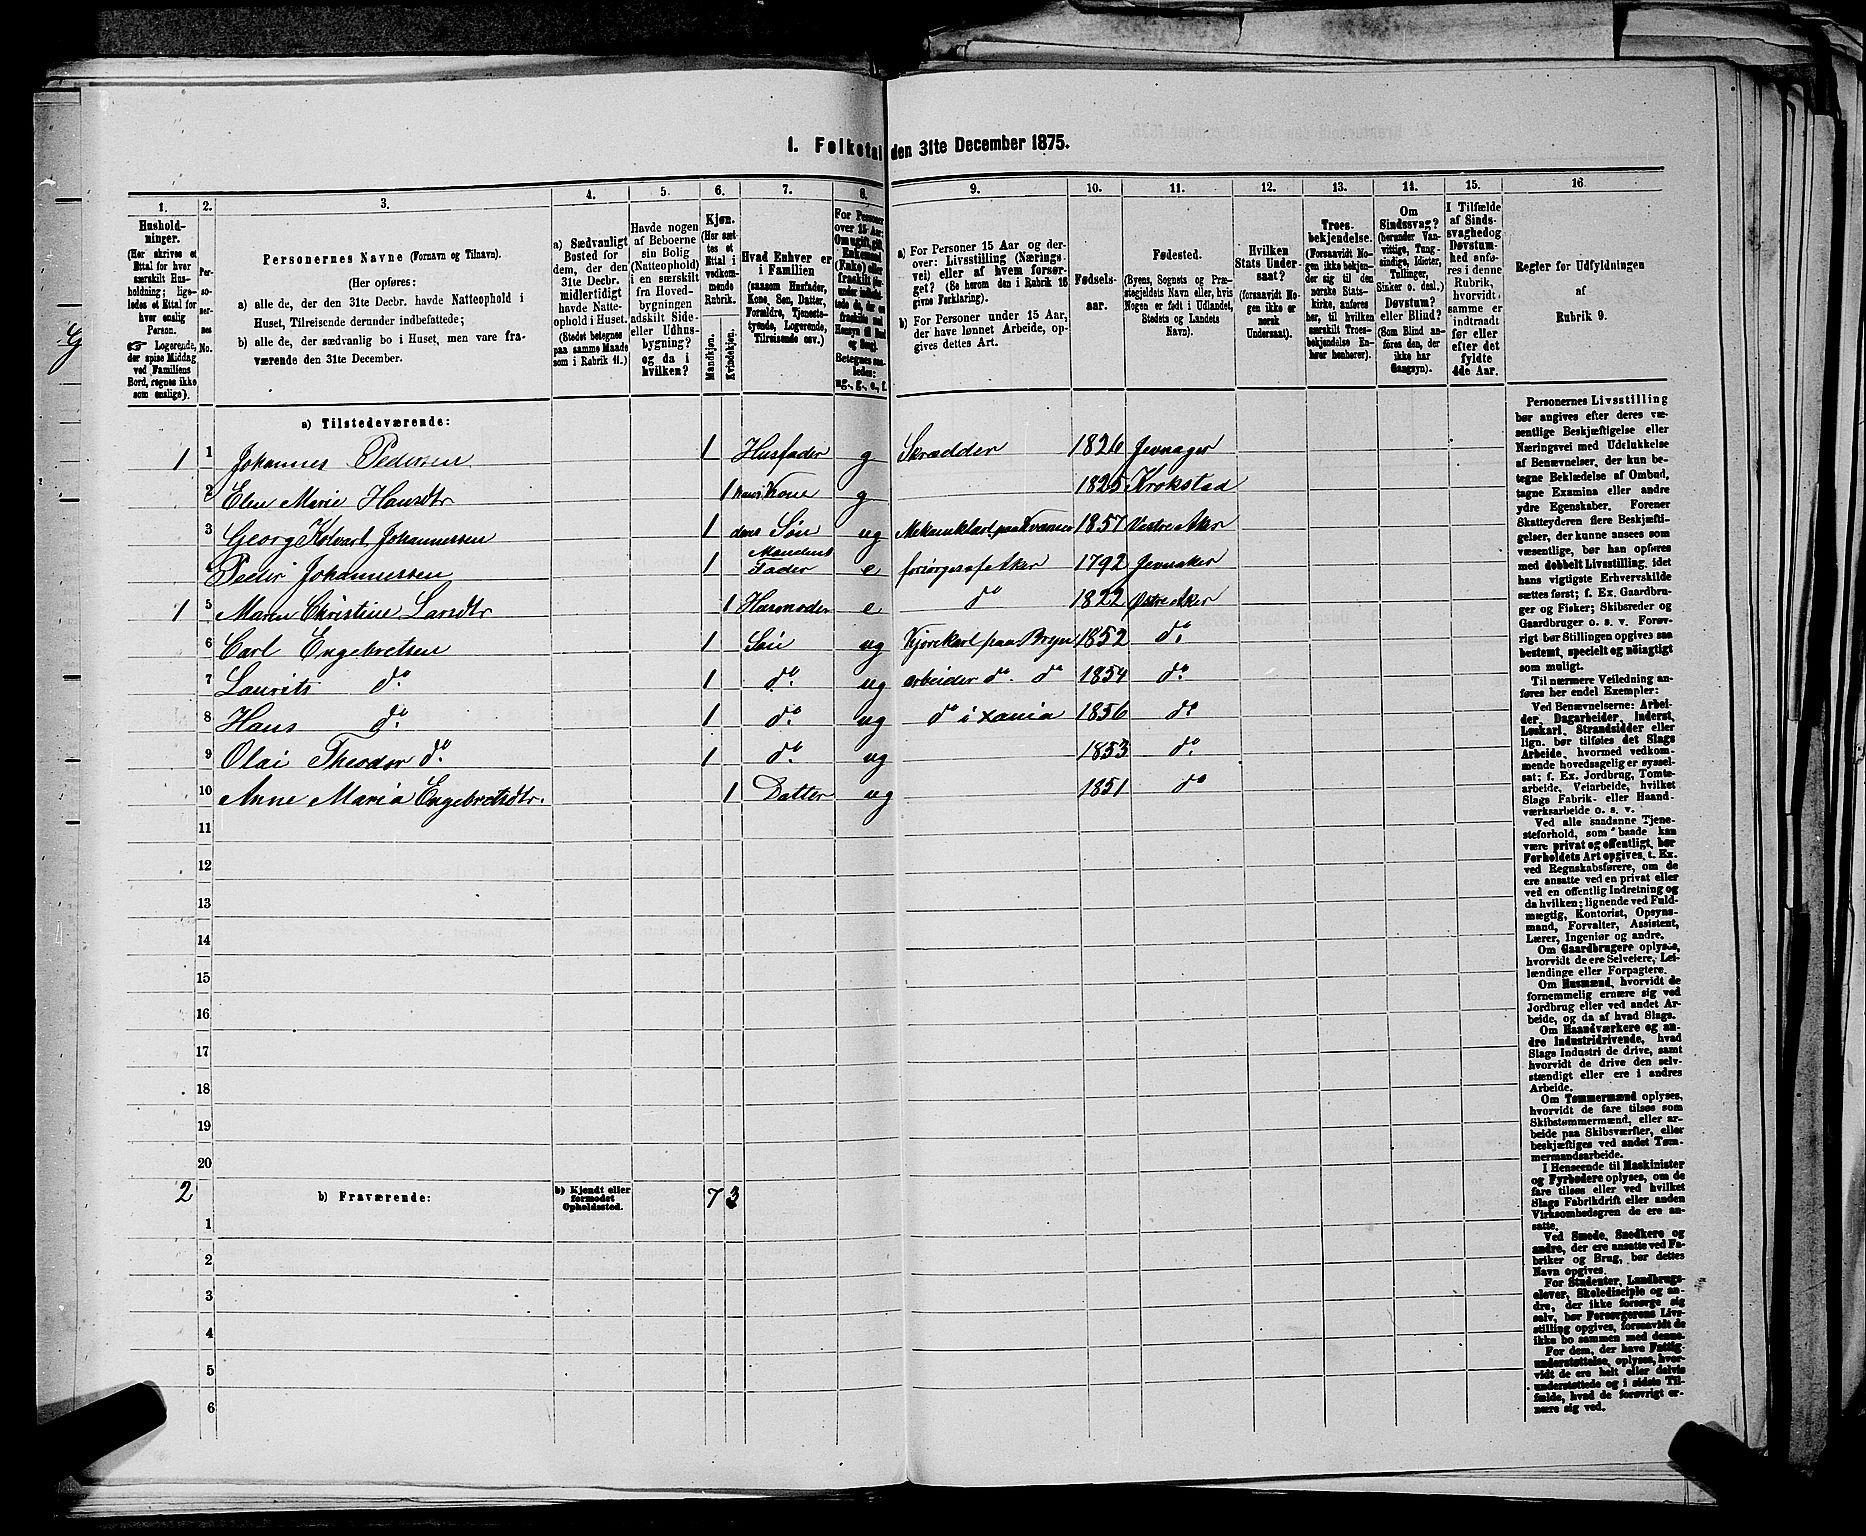 1. Folketal den 31te December 1875.
1. 2. 3. 4. 5. 6. 7. 8. 9. 10. 11. 12. 13. 14. 15. 16.
Hushold-
ninger.
(Her skrives et
Ettal for hver
særskilt Hus-
holdning; lige-
ledes et Ettal for
hver enslig
Person.
☞ Logerende,
der spise Middag
ved Familiens
Bord, regnes ikke
som enslige).
Per-
so-
ner-
nes
No.
Personernes Navne (Fornavn og Tilnavn).
(Her opføres:
a) alle de, der den 31te Decbr. havde Natteophold i
Huset, Tilreisende derunder indbefattede;
b) alle de, der sædvanlig bo i Huset, men vare fra-
værende den 31te December.
a) Sædvanligt
Bosted for
dem, der den
31te Decbr.
midlertidigt
havde Natte-
ophold i Huset.
(Stedet betegnes
paa samme Maade
som i Rubrik 11.)
Havde nogen
af Beboerne
sin Bolig
(Natteophold)
i en særskilt
fra Hoved-
bygningen
adskilt Side-
eller Udhus-
bygning?
og da i
hvilken?
Kjøn.
(Her sæt-
tes et
Ettal i
vedkom-
mende
Rubrik.
Mandkjøn.
Kvindekjøn.
Hvad Enhver er
i Familien
(saasom Husfader,
Kone, Søn, Datter,
Forældre, Tjeneste-
tyende, Logerende,
Tilreisende osv.)
For Personer
over 15 Aar:
Om ugift, gift,
Enkemand
(Enke) eller
fraskilt
Betegnes saa-
ledes:
ug., g., e., f.
a) For Personer 15 Aar og der-
over: Livsstilling (Nærings-
vei) eller af hvem forsør-
get? (Se herom den i Rubrik 16
givne Forklaring).
b) For Personer under 15 Aar,
der have lønnet Arbeide, op-
gives dettes Art.
Fødsels-
aar.
Fødested.
(Byens, Sognets og Præ-
stegjeldets Navn eller, hvis
Nogen er født i Udlandet,
Stedets og Landets
Navn).
Hvilken
Stats Under-
saat?
(forsaavidt No-
gen ikke er
norsk
Undersaat).
Troes-
bekjendelse.
(Forsaavidt No-
gen ikke bekjen-
der sig til den
norske Stats-
kirke, anføres
her, til hvilken
særskilt Troes-
bekjendelse En-
hver henhører).
Om
Sindssvag?
(herunder Van-
vittige, Tung-
sindige, Idioter,
Tullinger,
Sinker o. desl.)
Døvstum?
eller Blind?
(Som Blind an-
føres den, der
ikke har
Gangsyn).
I Tilfælde
af Sinds-
svaghed og
Døvstum-
hed anfø-
res i denne
Rubrik,
hvorvidt
samme er
indtraadt
før eller
efter det
fyldte
4de Aar.
Regler for Udfyldningen
af
Rubrik 9.
a) Tilstedeværende:
1 1 Johannes Pedersen 1 Husfader g Skrædder 1826 Jevnager
2 Elen Marie Hansdtr 1 hans Kone g 1825 Krokstad
3 Georg Johannessen 1 deres Søn ug 1857 Vestre Aker
4 Peder Johannessen 1 Mandens Fader e forsørges af Aker 1792 Jevnaker
1 5 Maren Christine Larsdtr 1 Husmoder e do 1822 Østre Aker
6 Carl Engebretsen 1 Søn ug Kjørekarl paa Bryn 1852 do
7 Laurits do 1 do ug arbeider do do 1854 do
8 Hans do 1 do ug do i Xania 1856 do
9 Olai Theodor do 1 do ug 1853 do
10 Anne Maria Engebretsdtr. 1 Datter ug 1851 do
11
12
13
14
15
16
17
18
19
20
2 b) Fraværende: b) Kjendt eller
formodet
Opholdssted. 7 3
1
2
3
4
5
6
Personernes Livsstilling
bør angives efter deres væ-
sentlige Beskjæftigelse eller
Næringsvei med Udelukkelse
af Benævnelser, der kun be-
tegne Beklædelse af Ombud,
tagne Examina eller andre
ydre Egenskaber. Forener
Skatteyderen flere Beskjæfti-
gelser, der kunne ansees som
væsentlige, bør han opføres
med dobbelt Livsstilling, idet
hans vigtigste Erhvervskilde
sættes først; f. Ex. Gaardbru-
ger og Fisker; Skibsreder og
Gaardbruger o. s. v. Forøv-
rigt bør Stillingen opgives saa
bestemt, specielt og nøiagtigt
som muligt.
Til nærmere Veiledning an-
føres her endel Exempler:
Ved Benævnelserne: Arbei-
der, Dagarbeider, Inderst,
Løskarl, Strandsidder eller
lign. bør tilføies det Slags
Arbeide, hvormed vedkom-
mende hovedsagelig er syssel-
sat; f. Ex. Jordbrug, Tomte-
arbeide, Veiarbeide, hvilket
Slags Fabrik- eller Haand-
værksarbeide o. s. v.
Ved alle saadanne Tjene-
steforhold, som baade kan
være privat og offentligt, bør
Forholdets Art opgives, t. Ex.
ved Regnskabsførere, om de
ere ansatte ved en privat eller
ved en offentlig Indretning og
da hvilken; lignende ved Fuld-
mægtig, Kontorist, Opsyns-
mand, Forvalter, Assistent,
Lærer, Ingeniør og andre.
Om Gaardbrugere oplyses,
hvorvidt de ere Selveiere, Lei-
lændinge eller Forpagtere.
Om Husmænd, hvorvidt de
fornemmelig ernære sig ved
Jordbrug eller ved andet Ar-
beide, og da af hvad Slags.
Om Haandværkere og an-
dre Industridrivende, hvad
Slags Industri de drive, samt
hvorvidt de drive den selv-
stændigt eller ere i andres
Arbeide.
Om Tømmermænd oplyses,
hvorvidt de fare tilsøs som
Skibstømmermænd, eller ar-
beide paa Skibsværfter, eller
beskjæftiges ved andet Tøm-
mermandsarbeide.
I Henseende til Maskinister
og Fyrbødere oplyses, om de
fare tilsøs eller ved hvilket
Slags Fabrikdrift eller anden
Virksomhedsgren de ere an-
satte.
Ved Smede, Snedkere og
andre, der ere ansatte ved Fa-
briker og Brug, bør dettes
Navn opgives.
For Studenter, Landbrugs-
elever, Skoledisciple og an-
dre, der ikke forsørge sig
selv, bør Forsørgerens Livs-
stilling opgives, forsaavidt de
ikke bo sammen med denne.
For dem, der have Fattig-
understøttelse, oplyses, hvor-
vidt de ere helt eller delvis
understøttede og i sidste Til-
fælde, hvad de forøvrigt er-
nære sig ved.